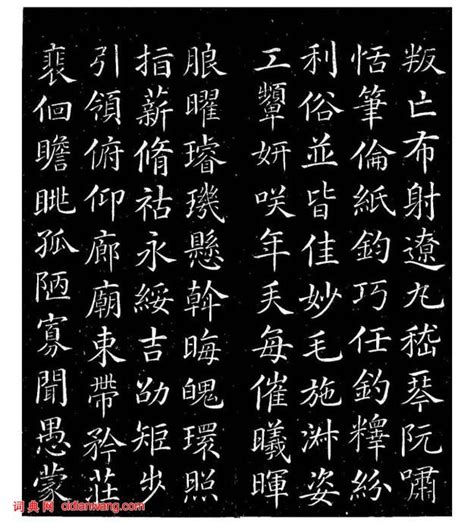 叛亡布射遼丸嵇琴阮嘯
恬筆倫紙鈞巧任釣釋紛
利俗並皆佳妙毛施淑姿
工顰妍咲年矢每催曦暉
朖曜璿璣懸斡晦魄環照
指薪脩祜永綏吉劭矩步
引領俯仰廊廟束帶矜莊
裵佪瞻眺孤陋寡聞愚蒙
词典网 cidianwang.com